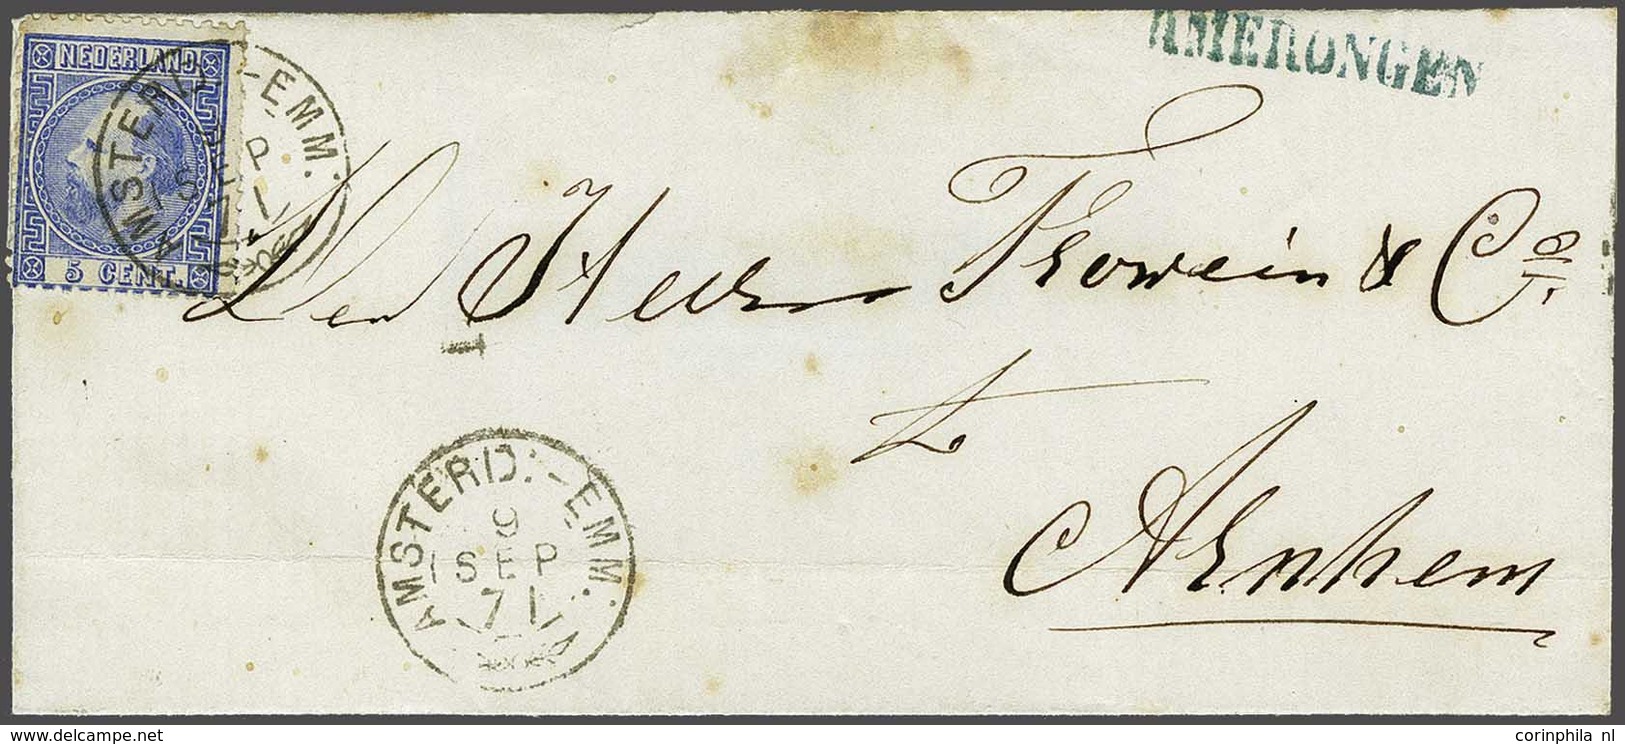 NEDERLAND
5 CENT.
AMSTERD.-EMM.
9
1 SEP
71
AMERONGEN
Den Heeren Frowein & Co.
te
Arnhem
AMSTERD.-EMM.
9
1 SEP
71
delcampe.net
corinphila nl